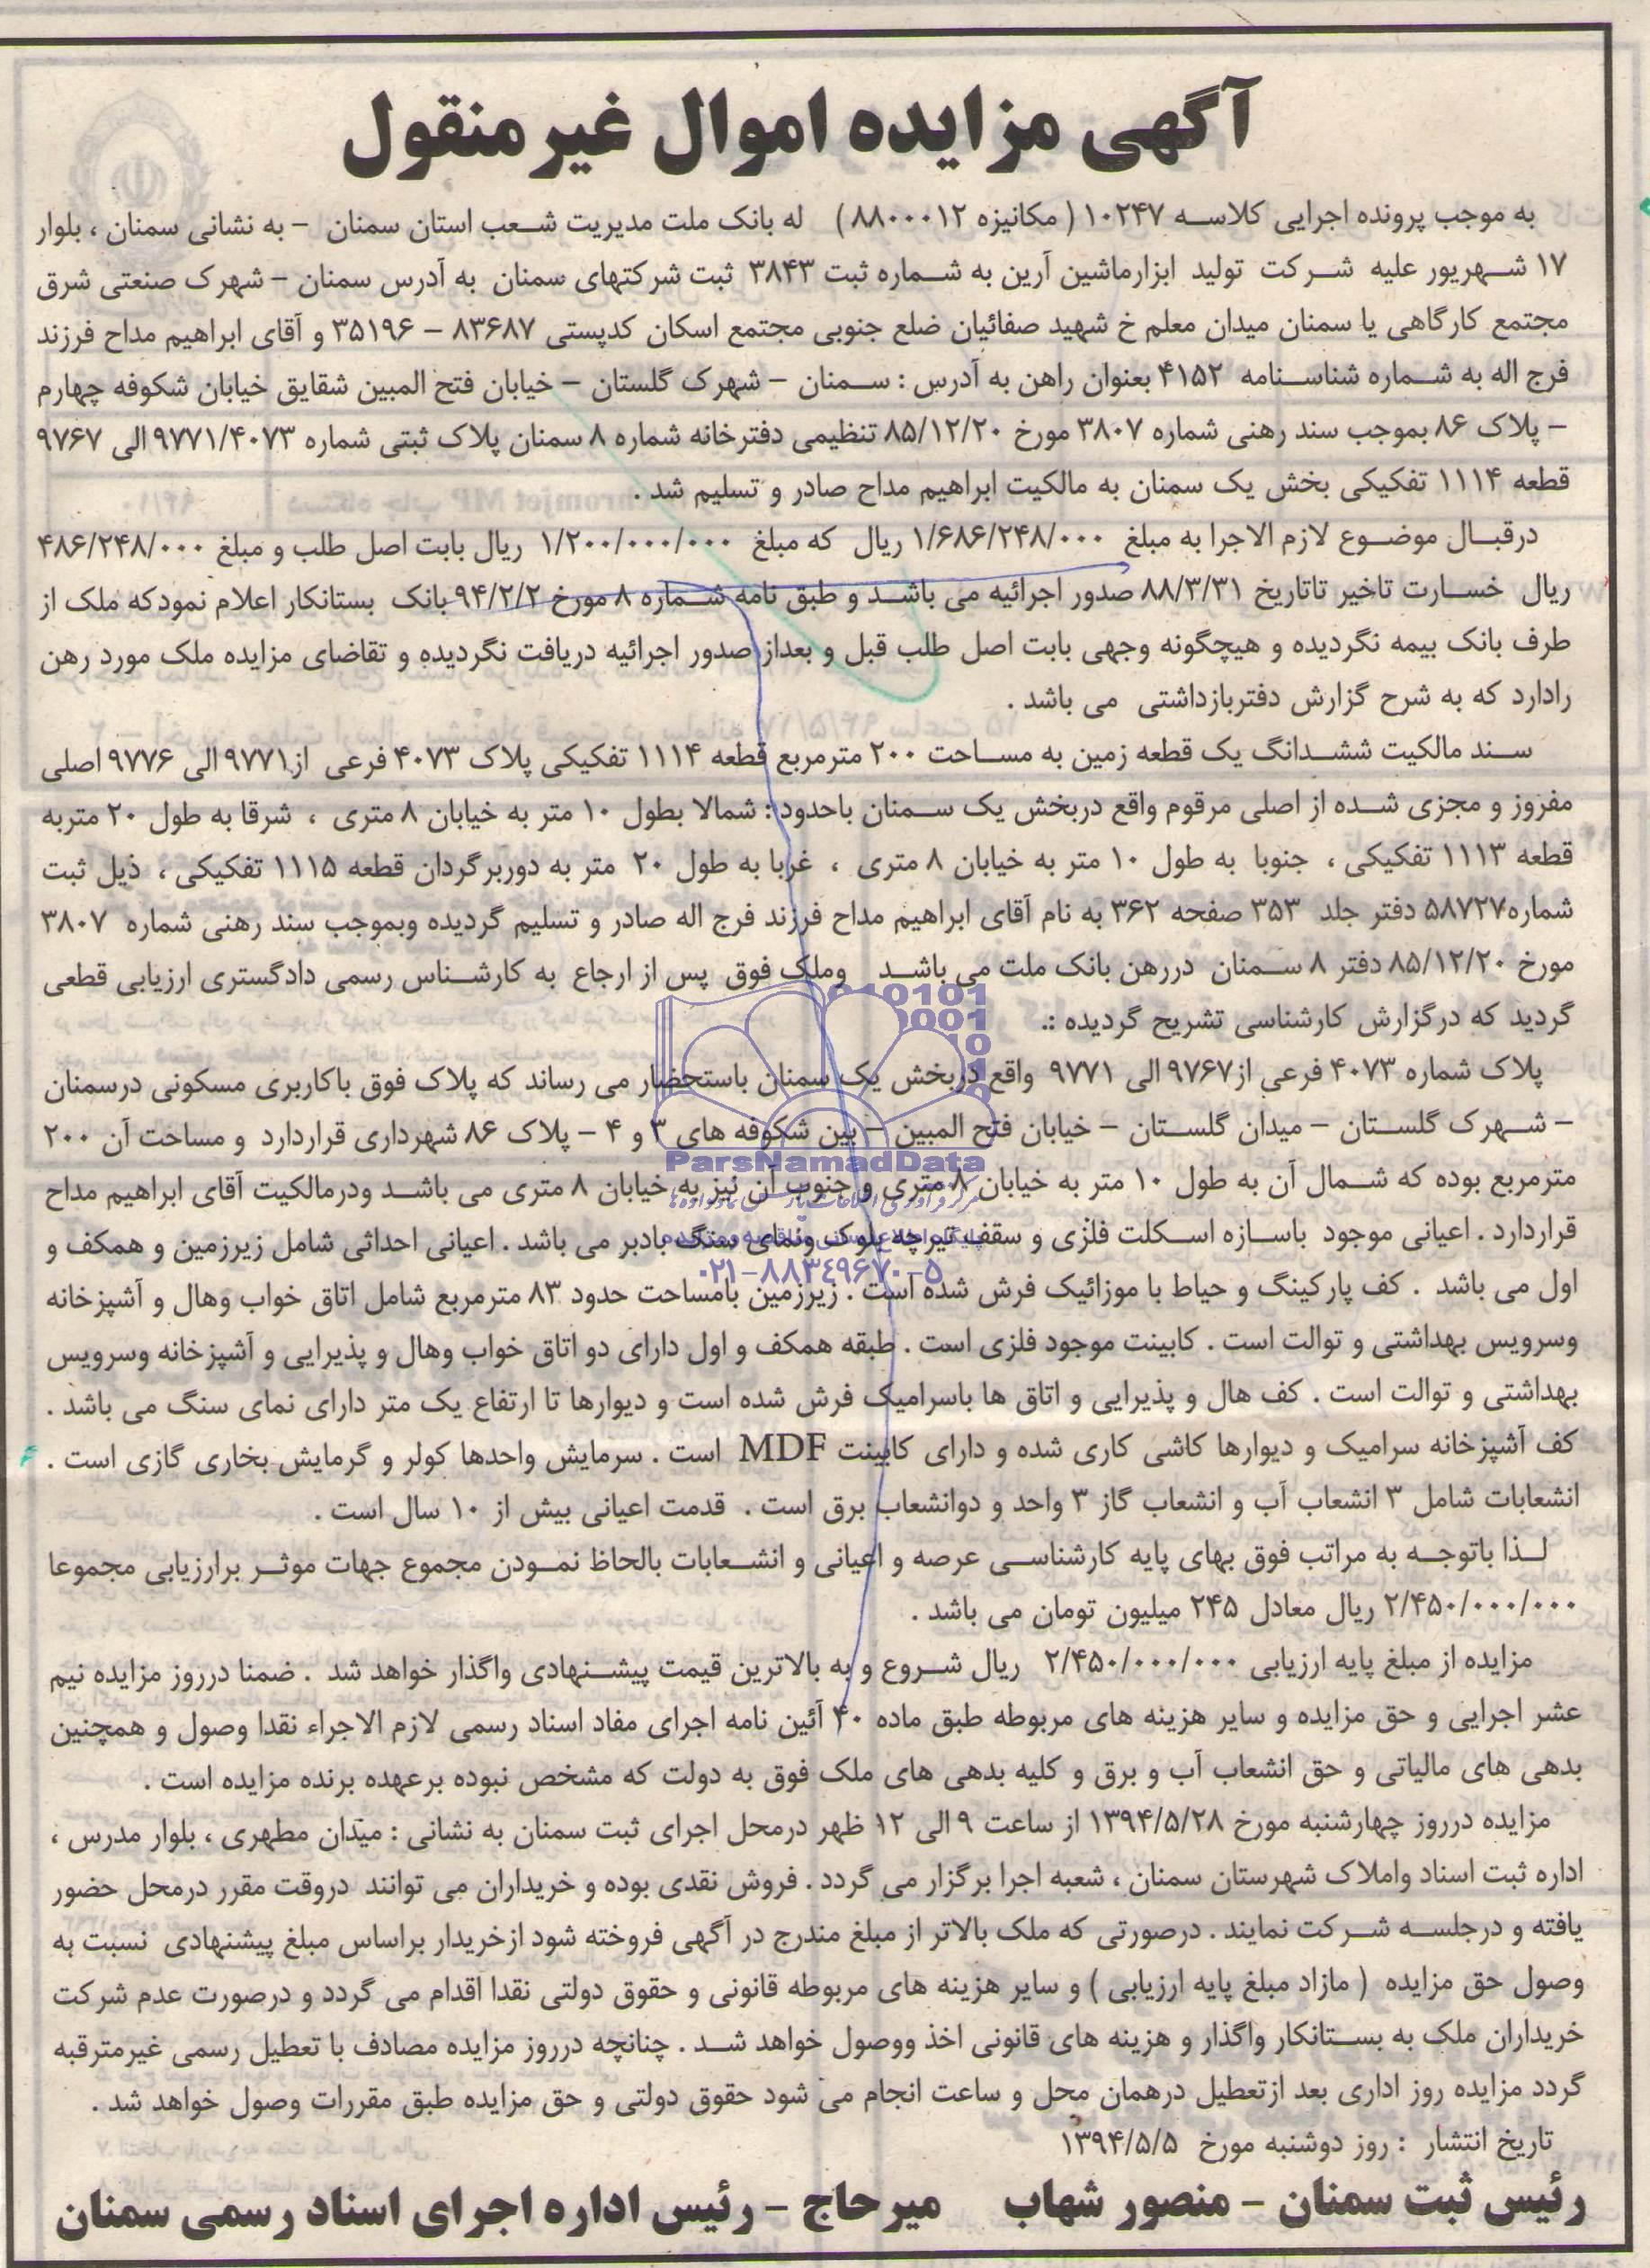 آگهی مزایده اموال غیر منقول
به موجب پرونده اجرایی کلاسه ۱۰۲۴۷ ( مکانیزه ۸۸۰۰۰۱۲ ) له بانک ملت مدیریت شعب استان سمنان - به نشانی سمنان ، بلوار
۱۷ شهریور علیه شرکت تولید ابزارماشین آرین به شماره ثبت ۳۸۴۳ ثبت شرکتهای سمنان به آدرس سمنان - شهرک صنعتی شرق
مجتمع کارگاهی یا سمنان میدان معلم خ شهید صفائیان ضلع جنوبی مجتمع اسکان کدپستی ۸۳۶۸۷ - ۳۵۱۹۶ و آقای ابراهیم مداح فرزند
فرج اله به شماره شناسنامه ۴۱۵۲ بعنوان راهن به آدرس : سمنان - شهرک گلستان - خیابان فتح المبین شقایق خیابان شکوفه چهارم
- پلاک ۸۶ بموجب سند رهنی شماره ۳۸۰۷ مورخ ۸۵/۱۲/۲۰ تنظیمی دفترخانه شماره ۸ سمنان پلاک ثبتی شماره ۹۷۷۱/۴۰۷۳ الی ۹۷۶۷
قطعه ۱۱۱۴ تفکیکی بخش یک سمنان به مالکیت ابراهیم مداح صادر و تسلیم شد .
درقبال موضوع لازم الاجرا به مبلغ ۱/۶۸۶/۲۴۸/۰۰۰ ریال که مبلغ ۱/۲۰۰/۰۰۰/۰۰۰ ریال بابت اصل طلب و مبلغ ۴۸۶/۲۴۸/۰۰۰
ریال خسارت تاخیر تاتاریخ ۸۸/۳/۳۱ صدور اجرائیه می باشد و طبق نامه شماره ۸ مورخ ۹۴/۲/۲ بانک بستانکار اعلام نمودکه ملک از
طرف بانک بیمه نگردیده و هیچگونه وجهی بابت اصل طلب قبل و بعداز صدور اجرائیه دریافت نگردیده و تقاضای مزایده ملک مورد رهن
رادارد که به شرح گزارش دفتربازداشتی می باشد .
سند مالکیت ششدانگ یک قطعه زمین به مساحت ۲۰۰ مترمربع قطعه ۱۱۱۴ تفکیکی پلاک ۴۰۷۳ فرعی از۹۷۷۱ الی ۹۷۷۶ اصلی
مفروز و مجزی شده از اصلی مرقوم واقع دربخش یک سمنان باحدود : شمالا بطول ۱۰ متر به خیابان ۸ متری ، شرقا به طول ۲۰ متربه
قطعه ۱۱۱۳ تفکیکی ، جنوبا به طول ۱۰ متر به خیابان ۸ متری ، غربا به طول ۲۰ متر به دوربرگردان قطعه ۱۱۱۵ تفکیکی ، ذیل ثبت
شماره۵۸۷۲۷ دفتر جلد ۳۵۳ صفحه ۳۶۲ به نام آقای ابراهیم مداح فرزند فرج اله صادر و تسلیم گردیده وبموجب سند رهنی شماره ۳۸۰۷
مورخ ۸۵/۱۲/۲۰ دفتر ۸ سمنان دررهن بانک ملت می باشد وملک فوق پس از ارجاع به کارشناس رسمی دادگستری ارزیابی قطعی
گردید که درگزارش کارشناسی تشریح گردیده :.
پلاک شماره ۴۰۷۳ فرعی از۹۷۶۷ الی ۹۷۷۱ واقع دربخش یک سمنان باستحضار می رساند که پلاک فوق باکاربری مسکونی درسمنان
- شهرک گلستان - میدان گلستان - خیابان فتح المبین - بین شکوفه های ۳ و ۴ - پلاک ۸۶ شهرداری قراردارد و مساحت آن ۲۰۰
ParsNamadData
مترمربع بوده که شمال آن به طول ۱۰ متر به خیابان ۸ متری و جنوب آن نیز به خیابان ۸ متری می باشد ودرمالکیت آقای ابراهیم مداح
قراردارد . اعیانی موجود باسازه اسکلت فلزی و سقف تیرچه بلوک ونمای سنگ بادبر می باشد . اعیانی احداثی شامل زیرزمین و همکف و
۰۲۱-۸۸۳۴۹۶۷۰-۵
اول می باشد . کف پارکینگ و حیاط با موزائیک فرش شده است . زیرزمین بامساحت حدود ۸۳ مترمربع شامل اتاق خواب وهال و آشپزخانه
وسرویس بهداشتی و توالت است . کابینت موجود فلزی است . طبقه همکف و اول دارای دو اتاق خواب وهال و پذیرایی و آشپزخانه وسرویس
بهداشتی و توالت است . کف هال و پذیرایی و اتاق ها باسرامیک فرش شده است و دیوارها تا ارتفاع یک متر دارای نمای سنگ می باشد .
کف آشپزخانه سرامیک و دیوارها کاشی کاری شده و دارای کابینت MDF است . سرمایش واحدها کولر و گرمایش بخاری گازی است .
انشعابات شامل ۳ انشعاب آب و انشعاب گاز ۳ واحد و دوانشعاب برق است . قدمت اعیانی بیش از ۱۰ سال است .
لذا باتوجه به مراتب فوق بهای پایه کارشناسی عرصه و اعیانی و انشعابات بالحاظ نمودن مجموع جهات موثر برارزیابی مجموعا
۲/۴۵۰/۰۰۰/۰۰۰ ریال معادل ۲۴۵ میلیون تومان می باشد .
مزایده از مبلغ پایه ارزیابی ۲/۴۵۰/۰۰۰/۰۰۰ ریال شروع و به بالاترین قیمت پیشنهادی واگذار خواهد شد . ضمنا درروز مزایده نیم
عشر اجرایی و حق مزایده و سایر هزینه های مربوطه طبق ماده ۴۰ آئین نامه اجرای مفاد اسناد رسمی لازم الاجراء نقدا وصول و همچنین
بدهی های مالیاتی و حق انشعاب آب و برق و کلیه بدهی های ملک فوق به دولت که مشخص نبوده برعهده برنده مزایده است .
مزایده درروز چهارشنبه مورخ ۱۳۹۴/۵/۲۸ از ساعت ۹ الی ۱۲ ظهر درمحل اجرای ثبت سمنان به نشانی : میدان مطهری ، بلوار مدرس ،
اداره ثبت اسناد واملاک شهرستان سمنان ، شعبه اجرا برگزار می گردد . فروش نقدی بوده و خریداران می توانند دروقت مقرر درمحل حضور
یافته و درجلسه شرکت نمایند . درصورتی که ملک بالاتر از مبلغ مندرج در آگهی فروخته شود ازخریدار براساس مبلغ پیشنهادی نسبت به
وصول حق مزایده ( مازاد مبلغ پایه ارزیابی ) و سایر هزینه های مربوطه قانونی و حقوق دولتی نقدا اقدام می گردد و درصورت عدم شرکت
خریداران ملک به بستانکار واگذار و هزینه های قانونی اخذ ووصول خواهد شد . چنانچه درروز مزایده مصادف با تعطیل رسمی غیرمترقبه
گردد مزایده روز اداری بعد ازتعطیل درهمان محل و ساعت انجام می شود حقوق دولتی و حق مزایده طبق مقررات وصول خواهد شد .
تاریخ انتشار : روز دوشنبه مورخ ۱۳۹۴/۵/۵
رئیس ثبت سمنان - منصور شهاب میرحاج - رئیس اداره اجرای اسناد رسمی سمنان